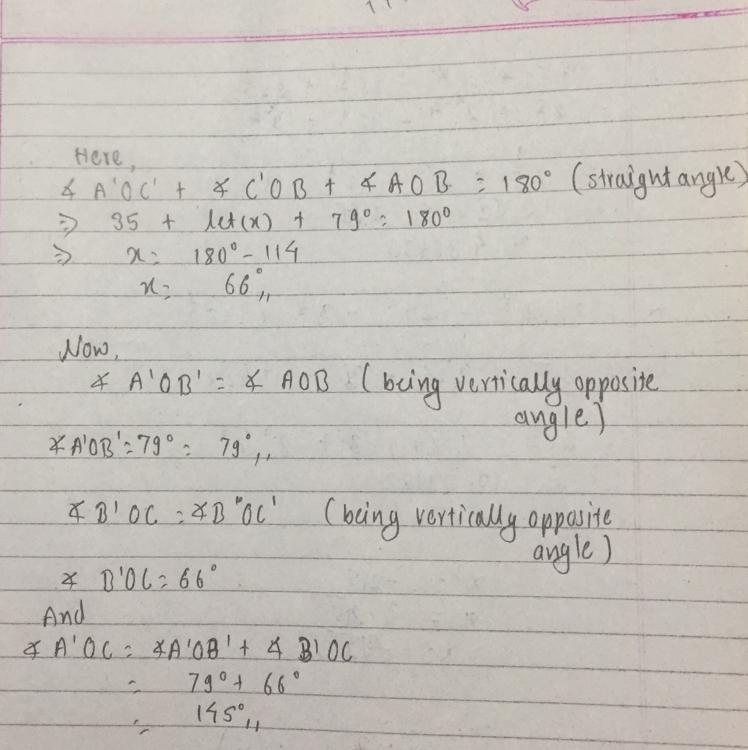 Here,
∡ A'OC' + ∡ C'OB + ∡ AOB = 180° (straight angle)
⇒ 35 + let(x) + 79° = 180°
⇒ x = 180° - 114
x = 66°,,
Now,
∡ A'OB' = ∡ AOB (being vertically opposite
angle)
∡A'OB' = 79° = 79°,,
∡ B'OC = ∡B"OC' (being vertically opposite
angle)
∡ B'OC = 66°
And
∡ A'OC = ∡A'OB' + ∡ B'OC
= 79° + 66°
= 145°,,